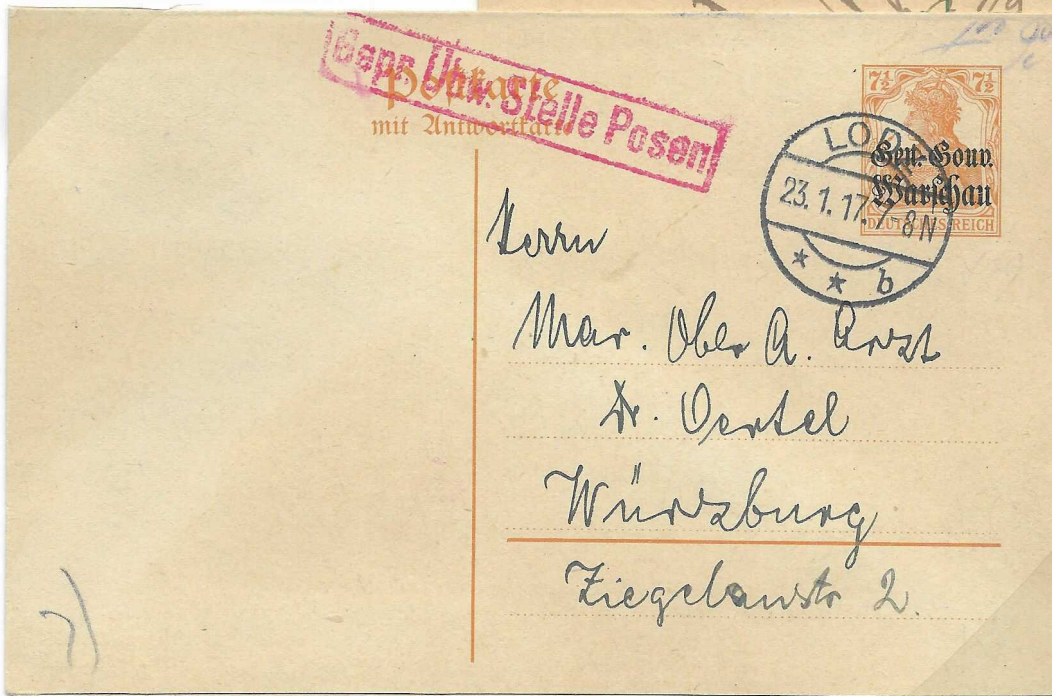 Gepr. Übw. Stelle Posen
Postkarte
mit Antwortkarte
7½ 7½
Gen.-Gouv.
Warschau
DEUTSCHES REICH
LODZ
23. 1. 17. 7-8 N
* * b
Herrn
Mar. Ober A. Arzt
Dr. Oertel
Würzburg
Ziegelaustr 2.